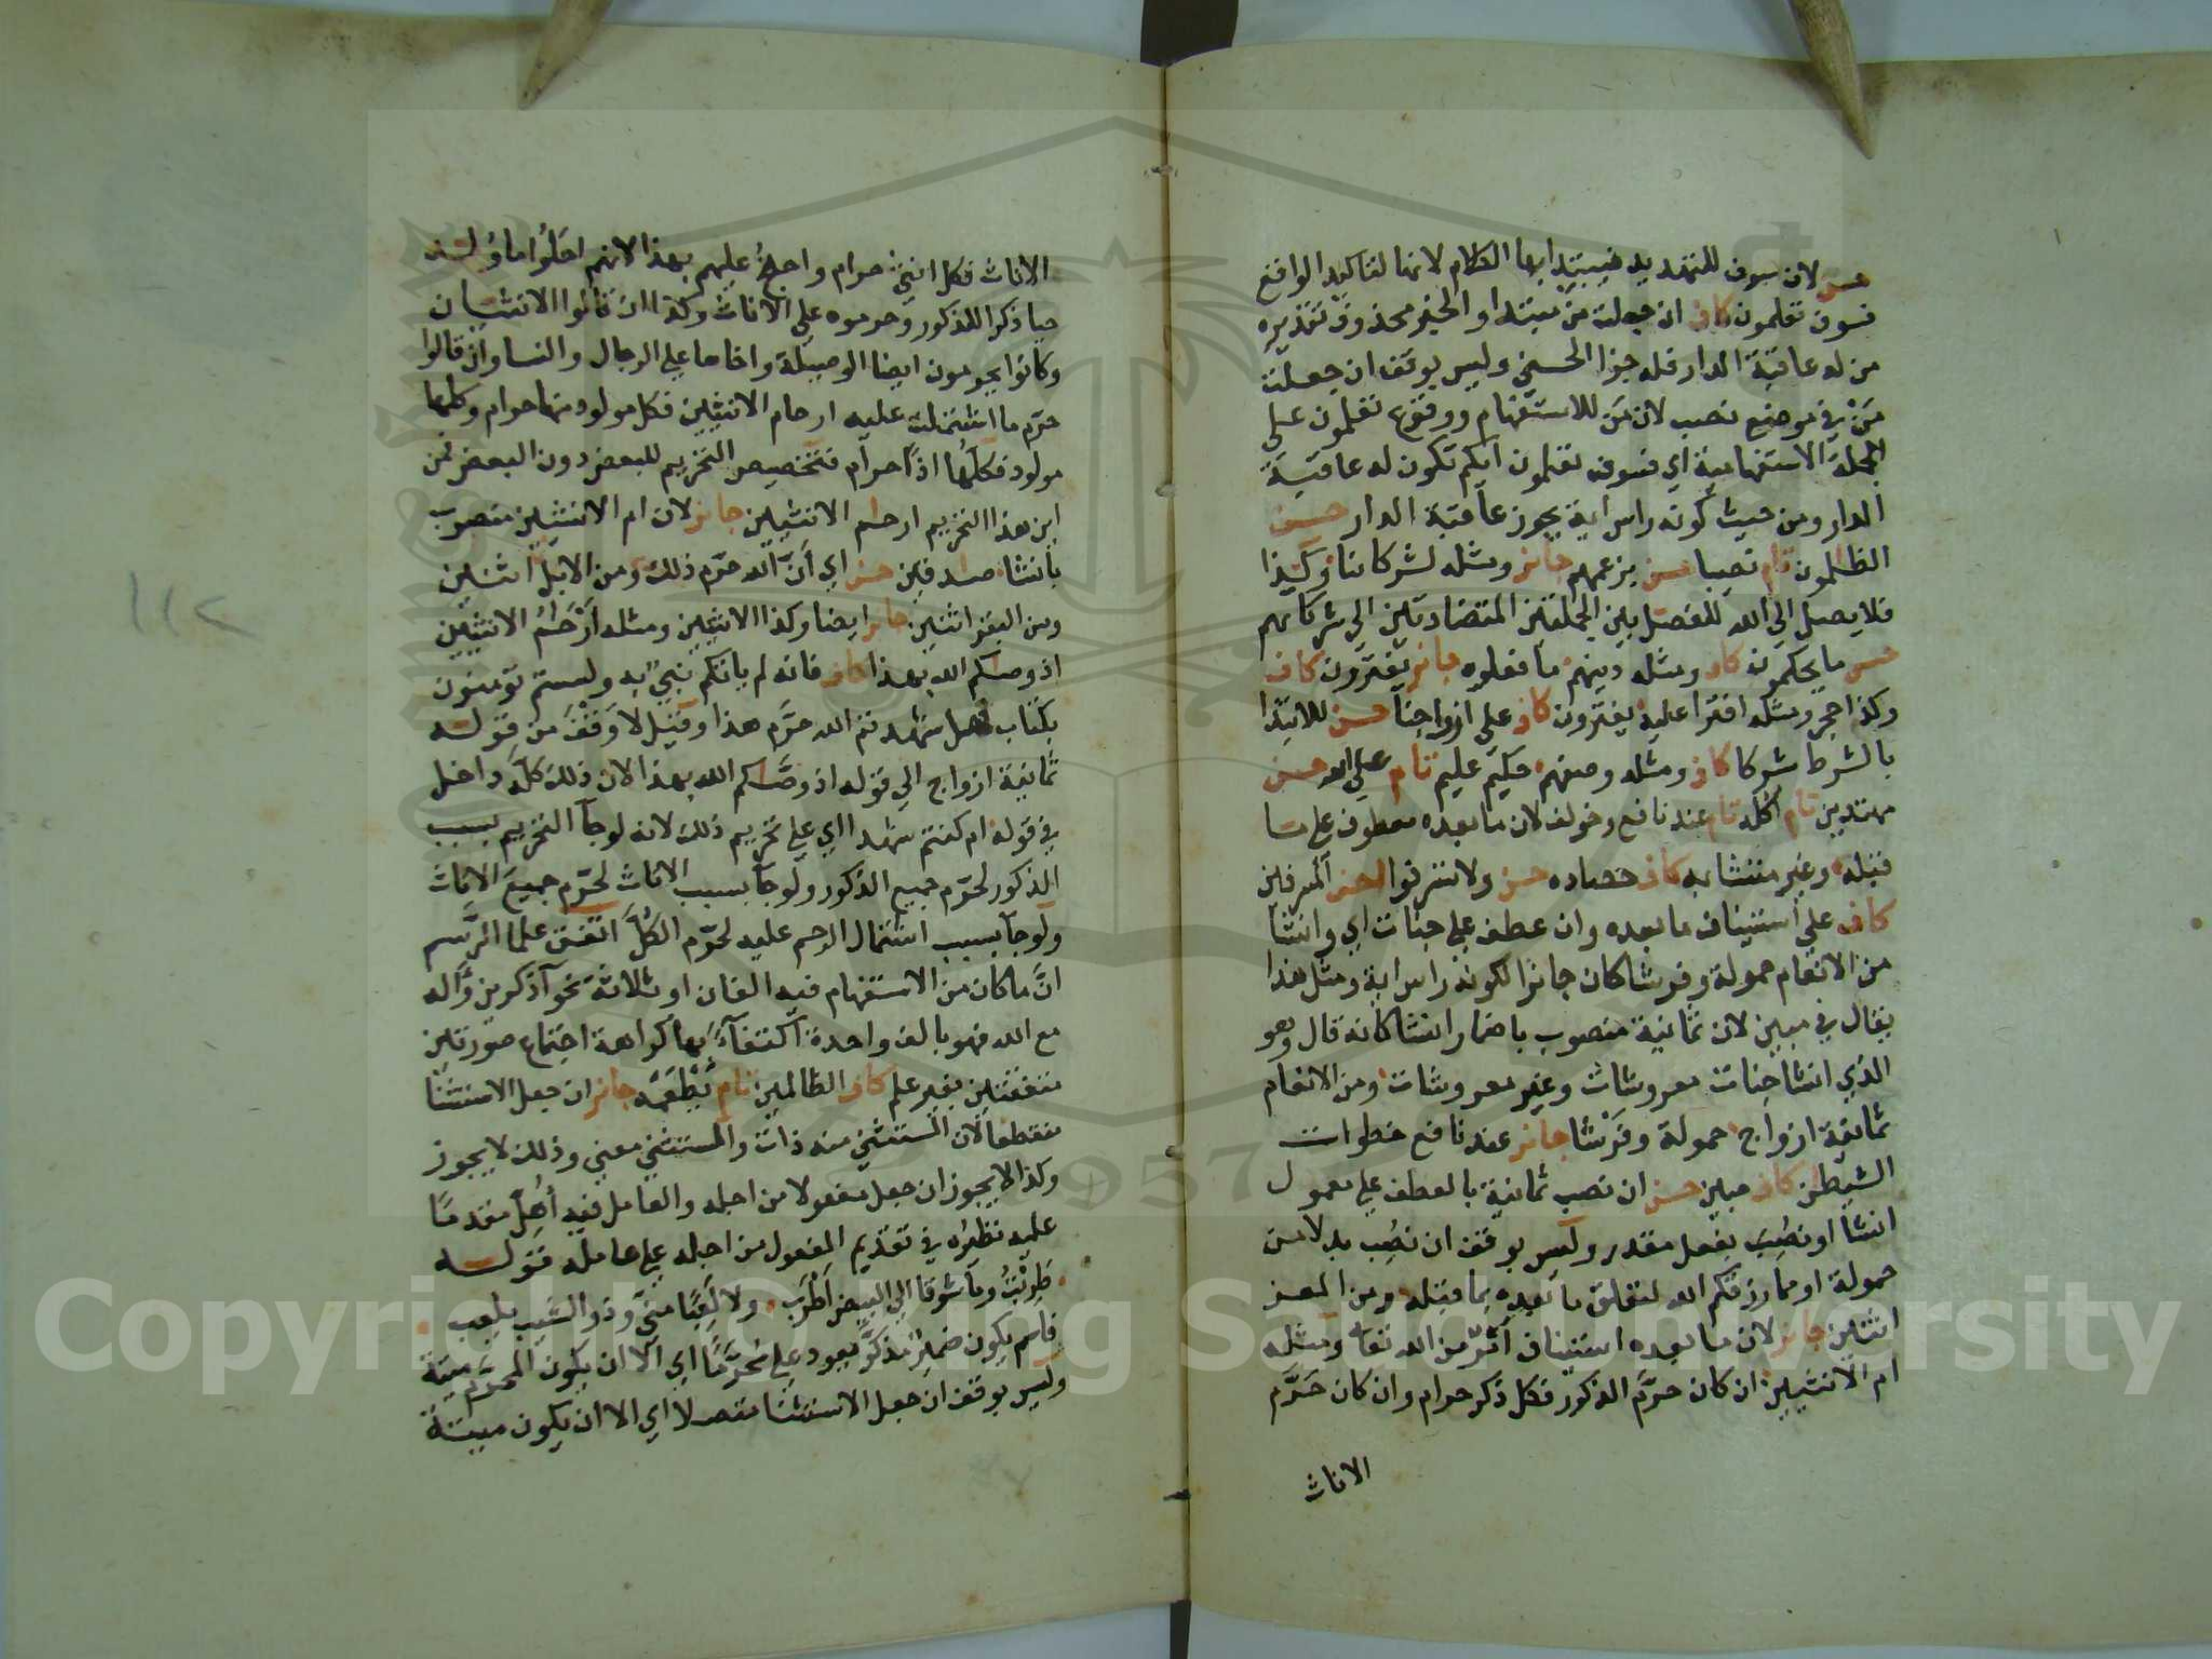 حسن لان سوف للتهديد فيبتدا بها الكلام لانها لتاكيد الواقع
فسوف تعلمون كاف ان جعلت من مبتدا والخبر محذوف تقديره
من له عاقبة الدار فله جزا الحسنى وليس بوقف ان جعلت
مَنْ في موضع نصب لان مَن للاستفهام ووقوع تعلمون على
الجملة الاستفهامية اي فسوف تعلمون ايكم تكون له عاقبة
الدار ومن حيث كونه راس اية يجوز عاقبة الدار حسن
الظلمون تام نصيبا حسن بزعمهم جائز ومثله لشركائنا وكذا
فلا يصل الى الله للفصل بين الجملتين المتضادتين الى شركائهم
حسن ما يحكمون كاف ومثله دينهم ما فعلوه جائز يفترون كاف
وكذا حجر ومثله افترا عليه يفترون كاف على ازواجنا حسن للابتدا
بالشرط شركا كاف ومثله وصفهم حكيم عليم تام على الله حسن
مهتدين تام اكله تام عند نافع وخولف لان ما بعده معطوف على ما
قبله وغير متشابه كاف حصاده حسن ولا تسرفوا احسن المسرفين
كاف على استيناف ما بعده وان عطف على جنات اي وانشا
من الانعام حمولة وفرشا كان جائزا لكونه راس اية ومثل هذا
يقال في مبين لان ثمانية منصوب باضمار انشا كانه قال وهو
الذي انشا جنات معروشات وغير معروشات ومن الانعام
ثمانية ازواج حمولة وفَرْشا جائز عند نافع خطوات
الشيطن كاف مبين حسن ان نصب ثمانية بالعطف على معمول
انشا او نُصِب بفعل مقدر وليس بوقف ان نُصِب بدلا من
حمولة او مما رزقكم الله لتعلق ما بعده بما قبله ومن المعز
اثنين جائز لان ما بعده استيناف امْر من الله تعا ومثله
ام الانثيين ان كان حرَّم الذكور فكل ذكر حرام وان كان حَرَّم
الاناث
الاناث فكل انثى حرام واحتج عليهم بهذا لانهم احلُّوا ما وُلد
حيا ذكرا للذكور وحرموه على الاناث وكذا ان قالوا الانثيان
وكانوا يحرمون ايضا الوصيلة واخاها على الرجال والنسا وان قالوا
حرّم ما اشتملت عليه ارحام الانثيين فكل مولود منها حرام وكلها
مولود فكلها اذًا حرام فتخصيص التحريم للبعض دون البعض من
اين هذا التحريم ارحام الانثيين جائز لان ام الانثيين منصوب
بانشا صدقين حسن اي اَنَّ الله حرّم ذلك ومن الابل اثنين
ومن البقر اثنين جائز ايضا وكذا الانثيين ومثله اَرْحَامُ الانثيين
اذ وصاكم الله بهذا كاف فانه لم ياتكم نبيّ به ولستم تؤمنون
بكتاب فهل شهدتم الله حرَّم هذا وقيل لا وَقْفَ من قوله
ثمانية ازواج الى قوله اذ وصَّاكم الله بهذا لان ذلك كله داخل
في قوله ام كنتم شهدا اي على تحريم ذلك لانه لو جآ التحريم بسبب
الذكور لحرّم جميع الذكور ولو جآ بسبب الاناث لحرّم جميع الاناث
ولو جآ بسبب اشتمال الرحم عليه لحرّم الكُلّ اتفق علما الرَّسم
انَّ ما كان من الاستفهام فيه الفان او ثلاثة نحو آذكرين وآله
مع الله فهو بالف واحدة اكتفآءً بها كراهة اجتماع صورتين
متفقتين بغير علم كاف الظالمين تام يَطْعَمُه جائز ان جعل الاستثنا
منقطعا لان المستثنى منه ذات والمستثنى معنى وذلك لا يجوز
وكذا لا يجوز ان جعل مفعولا من اجله والعامل فيه أُهِلَّ مقدما
عليه نظيره في تقديم المفعول من اجله على عامله قوله
طَرِبْتُ وما شوقا الى البيض اَطْرَبُ ولا لَعِبًا منى وذو الشيب يلعب
فاسم يكون ضمير مذكر يعود على مُحَرَّمًا اي الا ان يكون المحرّم ميتة
وليس بوقف ان جعل الاستثنا متصلا اي الا ان يكون ميتة
١١٢
Copyright © King Saud University
1957